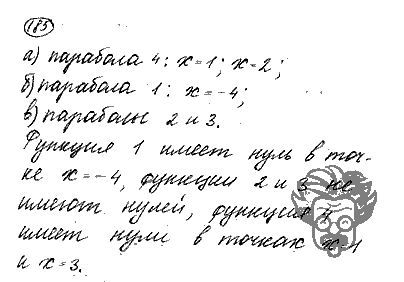 185
а) парабола 4: x=1; x=2;
б) парабола 1: x=-4;
в) параболы 2 и 3.
Функция 1 имеет нуль в точ-
ке x=-4, функции 2 и 3 не
имеют нулей, функция 4
имеет нули в точках x=1
и x=3.